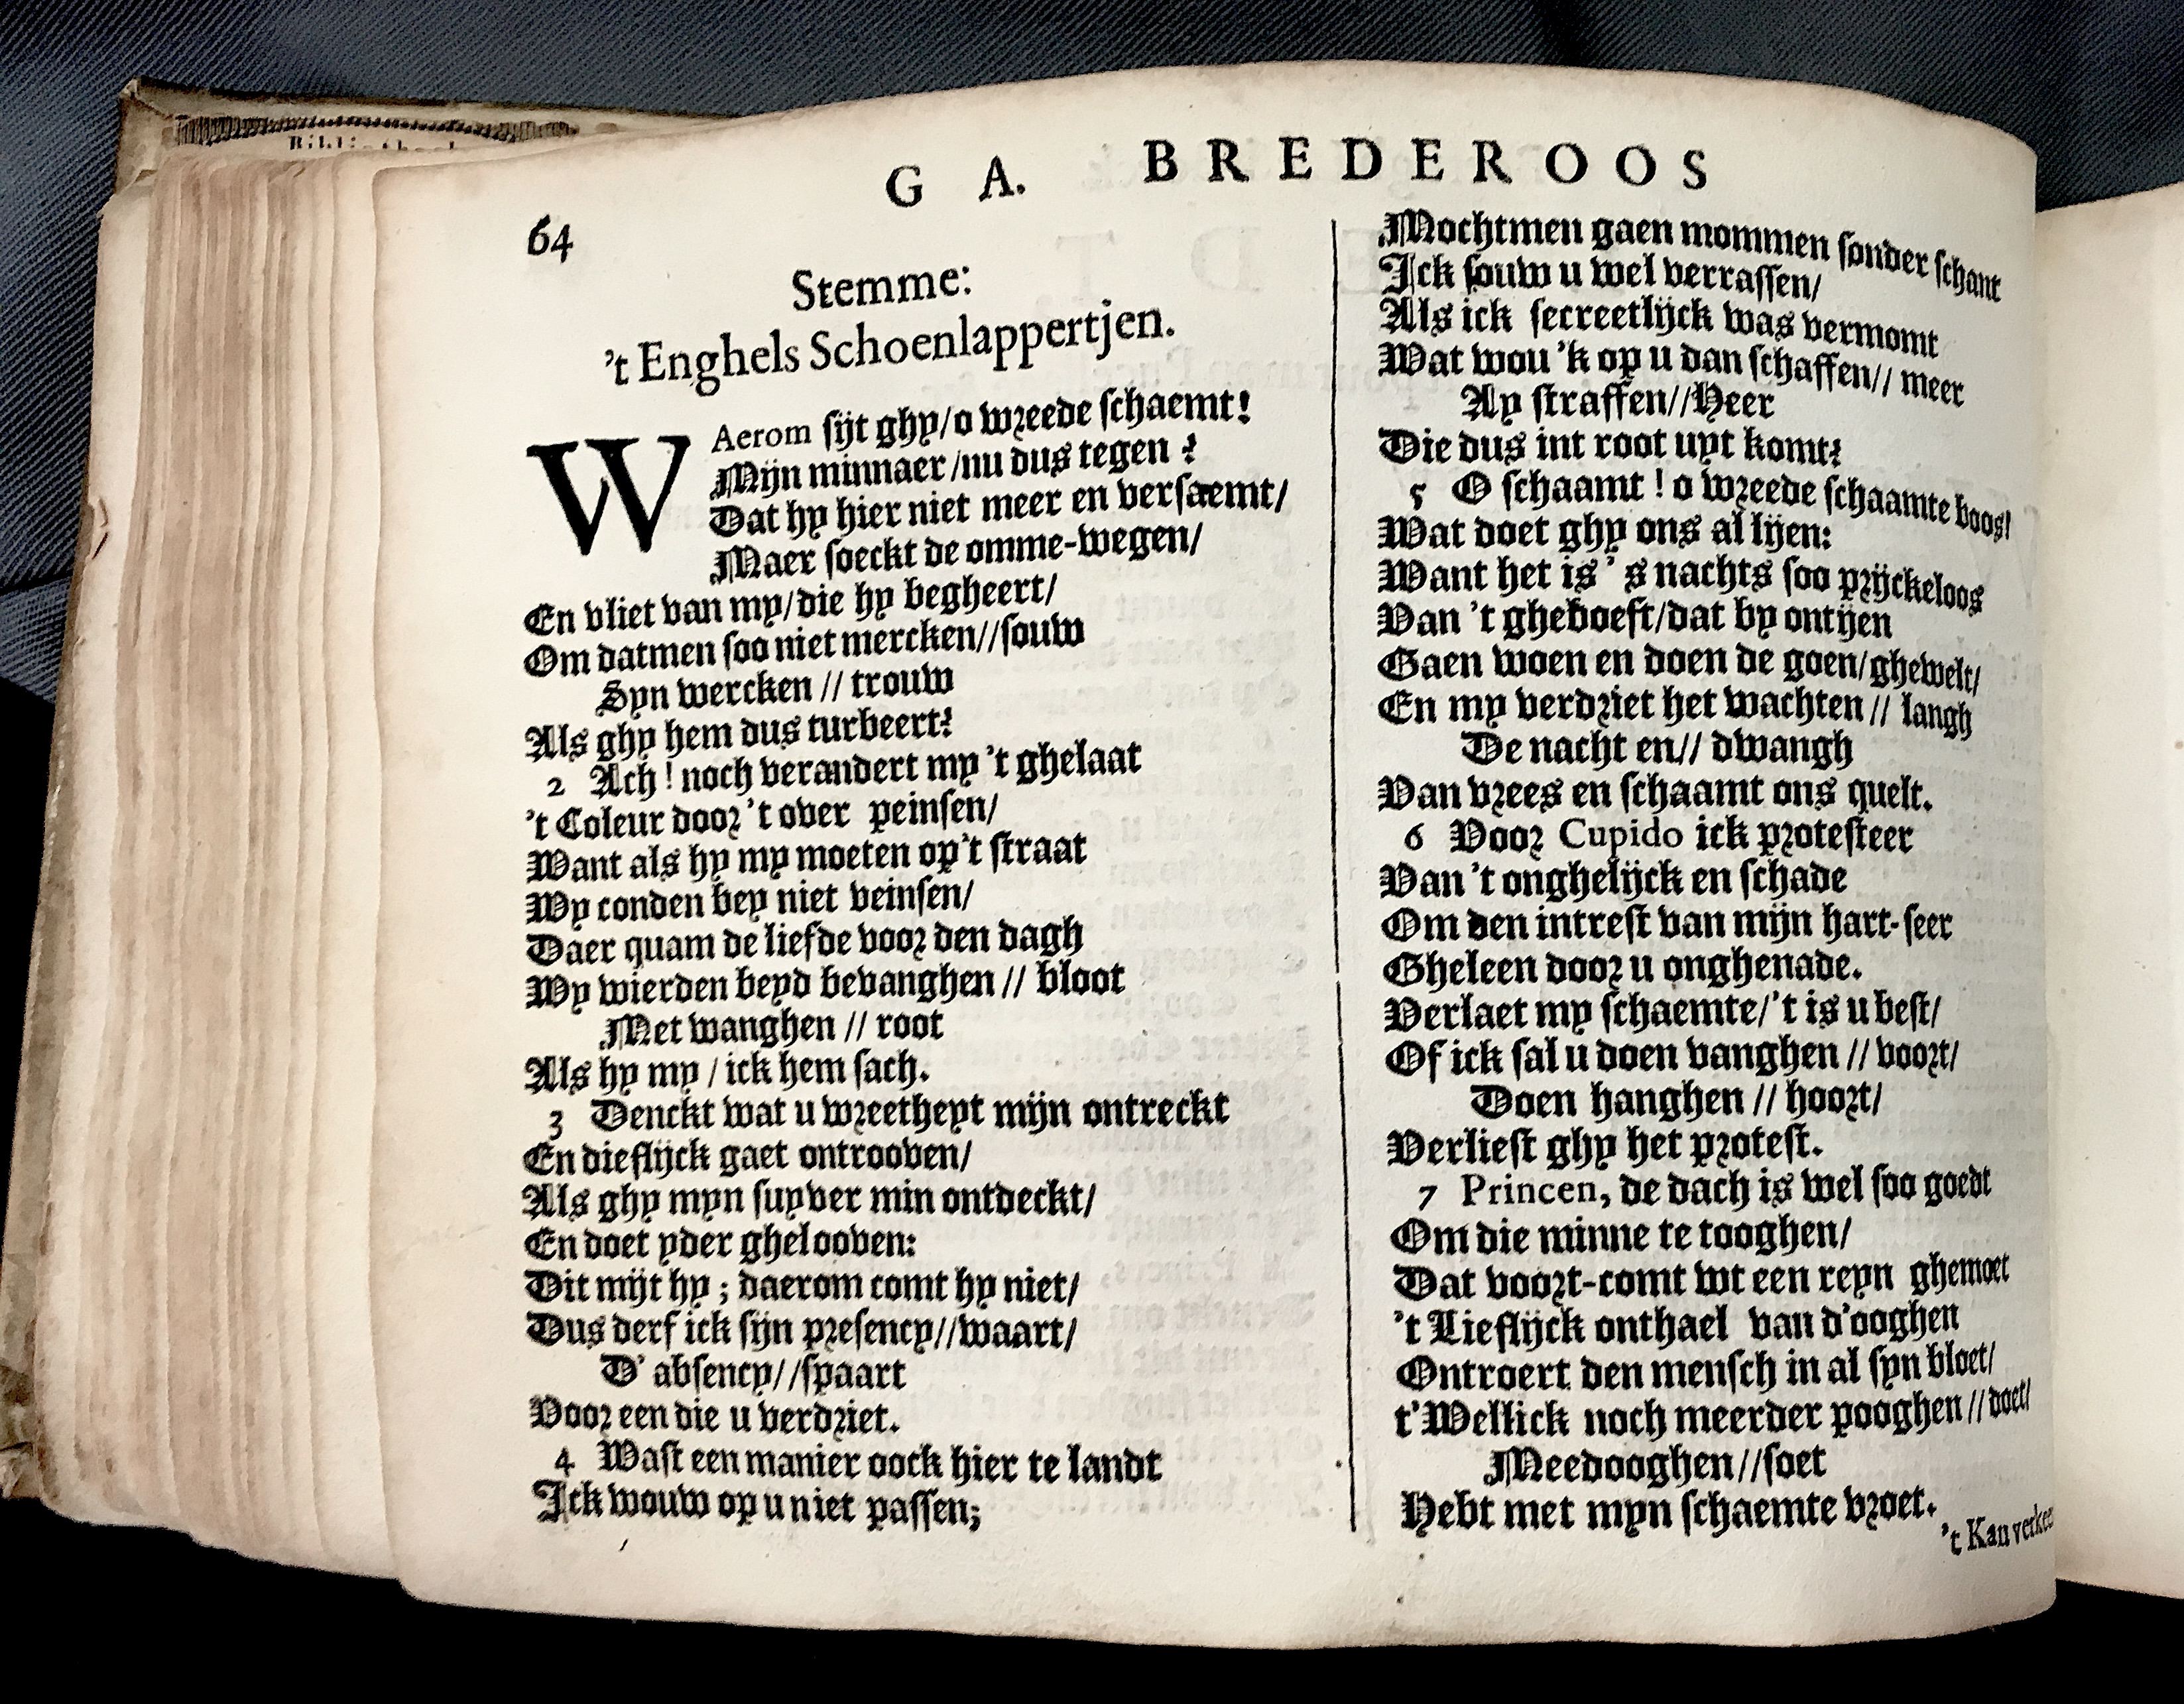 G A. BREDEROOS
64
Stemme:
't Enghels Schoenlappertjen.
WAerom sijt ghy/o wreede schaemt!
Mijn minnaer/nu dus tegen?
Dat hy hier niet meer en versaemt/
Maer soeckt de omme-wegen/
En vliet van my/die hy begheert/
Om datmen soo niet mercken//souw
Syn wercken // trouw
Als ghy hem dus turbeert?
2 Ach! noch verandert my 't ghelaat
't Coleur door 't over peinsen/
Want als hy my moeten op 't straat
Wy conden bey niet veinsen/
Daer quam de liefde voor den dagh
Wy wierden beyd bevanghen // bloot
Met wanghen // root
Als hy my / ick hem sach.
3 Denckt wat u wreetheyt mijn ontreckt
En dieflijck gaet ontrooven/
Als ghy myn suyver min ontdeckt/
En doet yder ghelooven:
Dit mijt hy; daerom comt hy niet/
Dus derf ick sijn presency//waart/
D' absency//spaart
Voor een die u verdriet.
4 Wast een manier oock hier te landt
Ick wouw op u niet passen;
Mochtmen gaen mommen sonder schant
Ick souw u wel verrassen/
Als ick secreetlijck was vermomt
Wat wou 'k op u dan schaffen// meer
Ay straffen//Heer
Die dus int root uyt komt?
5 O schaamt! o wreede schaamte boos!
Wat doet ghy ons al lijen:
Want het is 's nachts soo prijckeloos
Van 't gheboeft/dat by ontijen
Gaen woen en doen de goen/ghewelt/
En my verdriet het wachten // langh
De nacht en// dwangh
Van vrees en schaamt ons quelt.
6 Voor Cupido ick protesteer
Van 't onghelijck en schade
Om den intrest van mijn hart-seer
Gheleen door u onghenade.
Verlaet my schaemte/'t is u best/
Of ick sal u doen vanghen // voort/
Doen hanghen // hoort/
Verliest ghy het protest.
7 Princen, de dach is wel soo goedt
Om die minne te tooghen/
Dat voort-comt wt een reyn ghemoet
't Lieflijck onthael van d'ooghen
Ontroert den mensch in al syn bloet/
t'Wellick noch meerder pooghen // doet/
Meedooghen//soet
Hebt met myn schaemte vroet.
't Kan